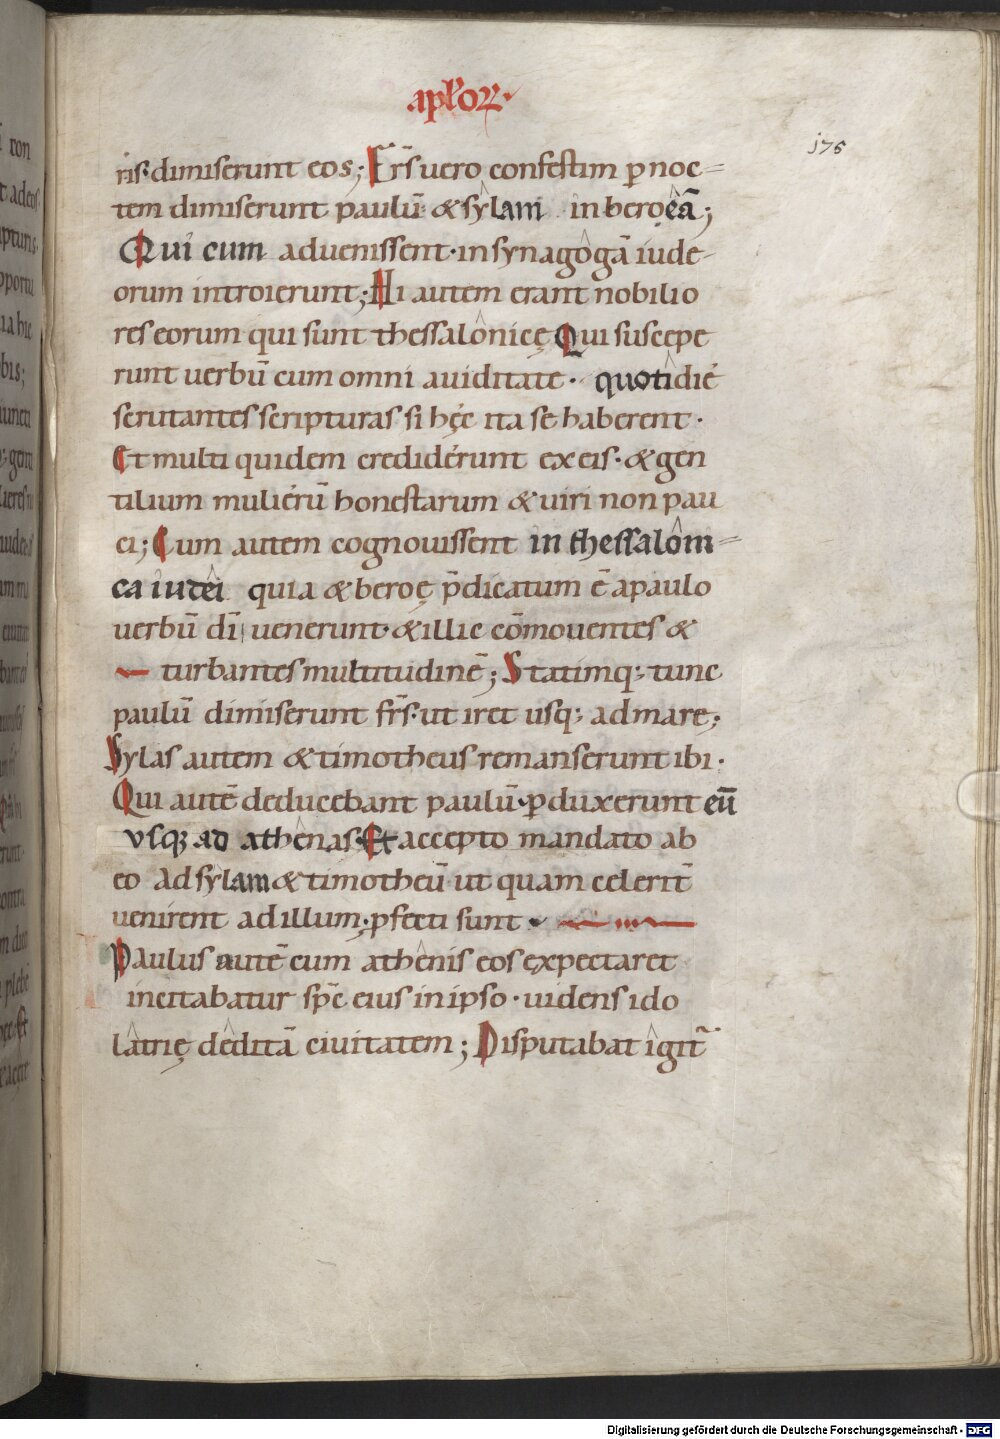 apl̄oꝝ·
175
ris· dimiserunt eos; Fr̄s uero confestim ꝑ noc-
tem dimiserunt paulū· & sylam in beroęâ̄;
Qui cum aduenissent· in synagôgā iude-
orum introierunt; Hi autem erant nobilio
res eorum qui sunt thessalônicę Qui suscepe
runt uerbū cum omni auiditate· quotîdié
scrutantes scripturas si hęc ita se haberent·
Et multi quidem credidérunt ex eis· & gen
tilium muliérū honestarum & uiri non pau
ci; Cum autem cognouissent in thessalôni-
ca iudêi quia & beroę p̄dicatum ē a paulo
uerbū dī uenerunt· & illic cōmouentes &
turbantes multitudinē; Statimq; tunc
paulū dimiserunt fr̄s· ut iret usq; ad mare;
Sylas autem & timotheus remanserunt ibi·
Qui autē deducebant paulū· ꝑduxerunt eū
vsq; ad athênas· Et accepto mandato ab
eo ad sylam & timotheū ut quam celerit̄
uenirent ad illum; ꝓfecti sunt·
Paulus autē cum athênis eos expectaret
incitabatur sp̄c eius in ipso· uidens ido
lâtrię dêditā ciuitatem; Disputabat îgit̄
ron
t adeos
bis;
Digitalisierung gefördert durch die Deutsche Forschungsgemeinschaft - DFG